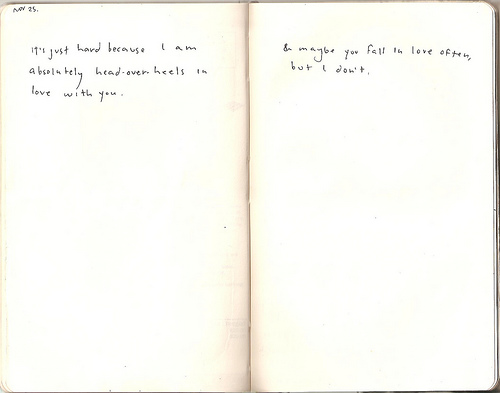 NOV 25.
it's just hard because I am
absolutely head-over-heels in
love with you.
& maybe you fall in love often,
but I don't.